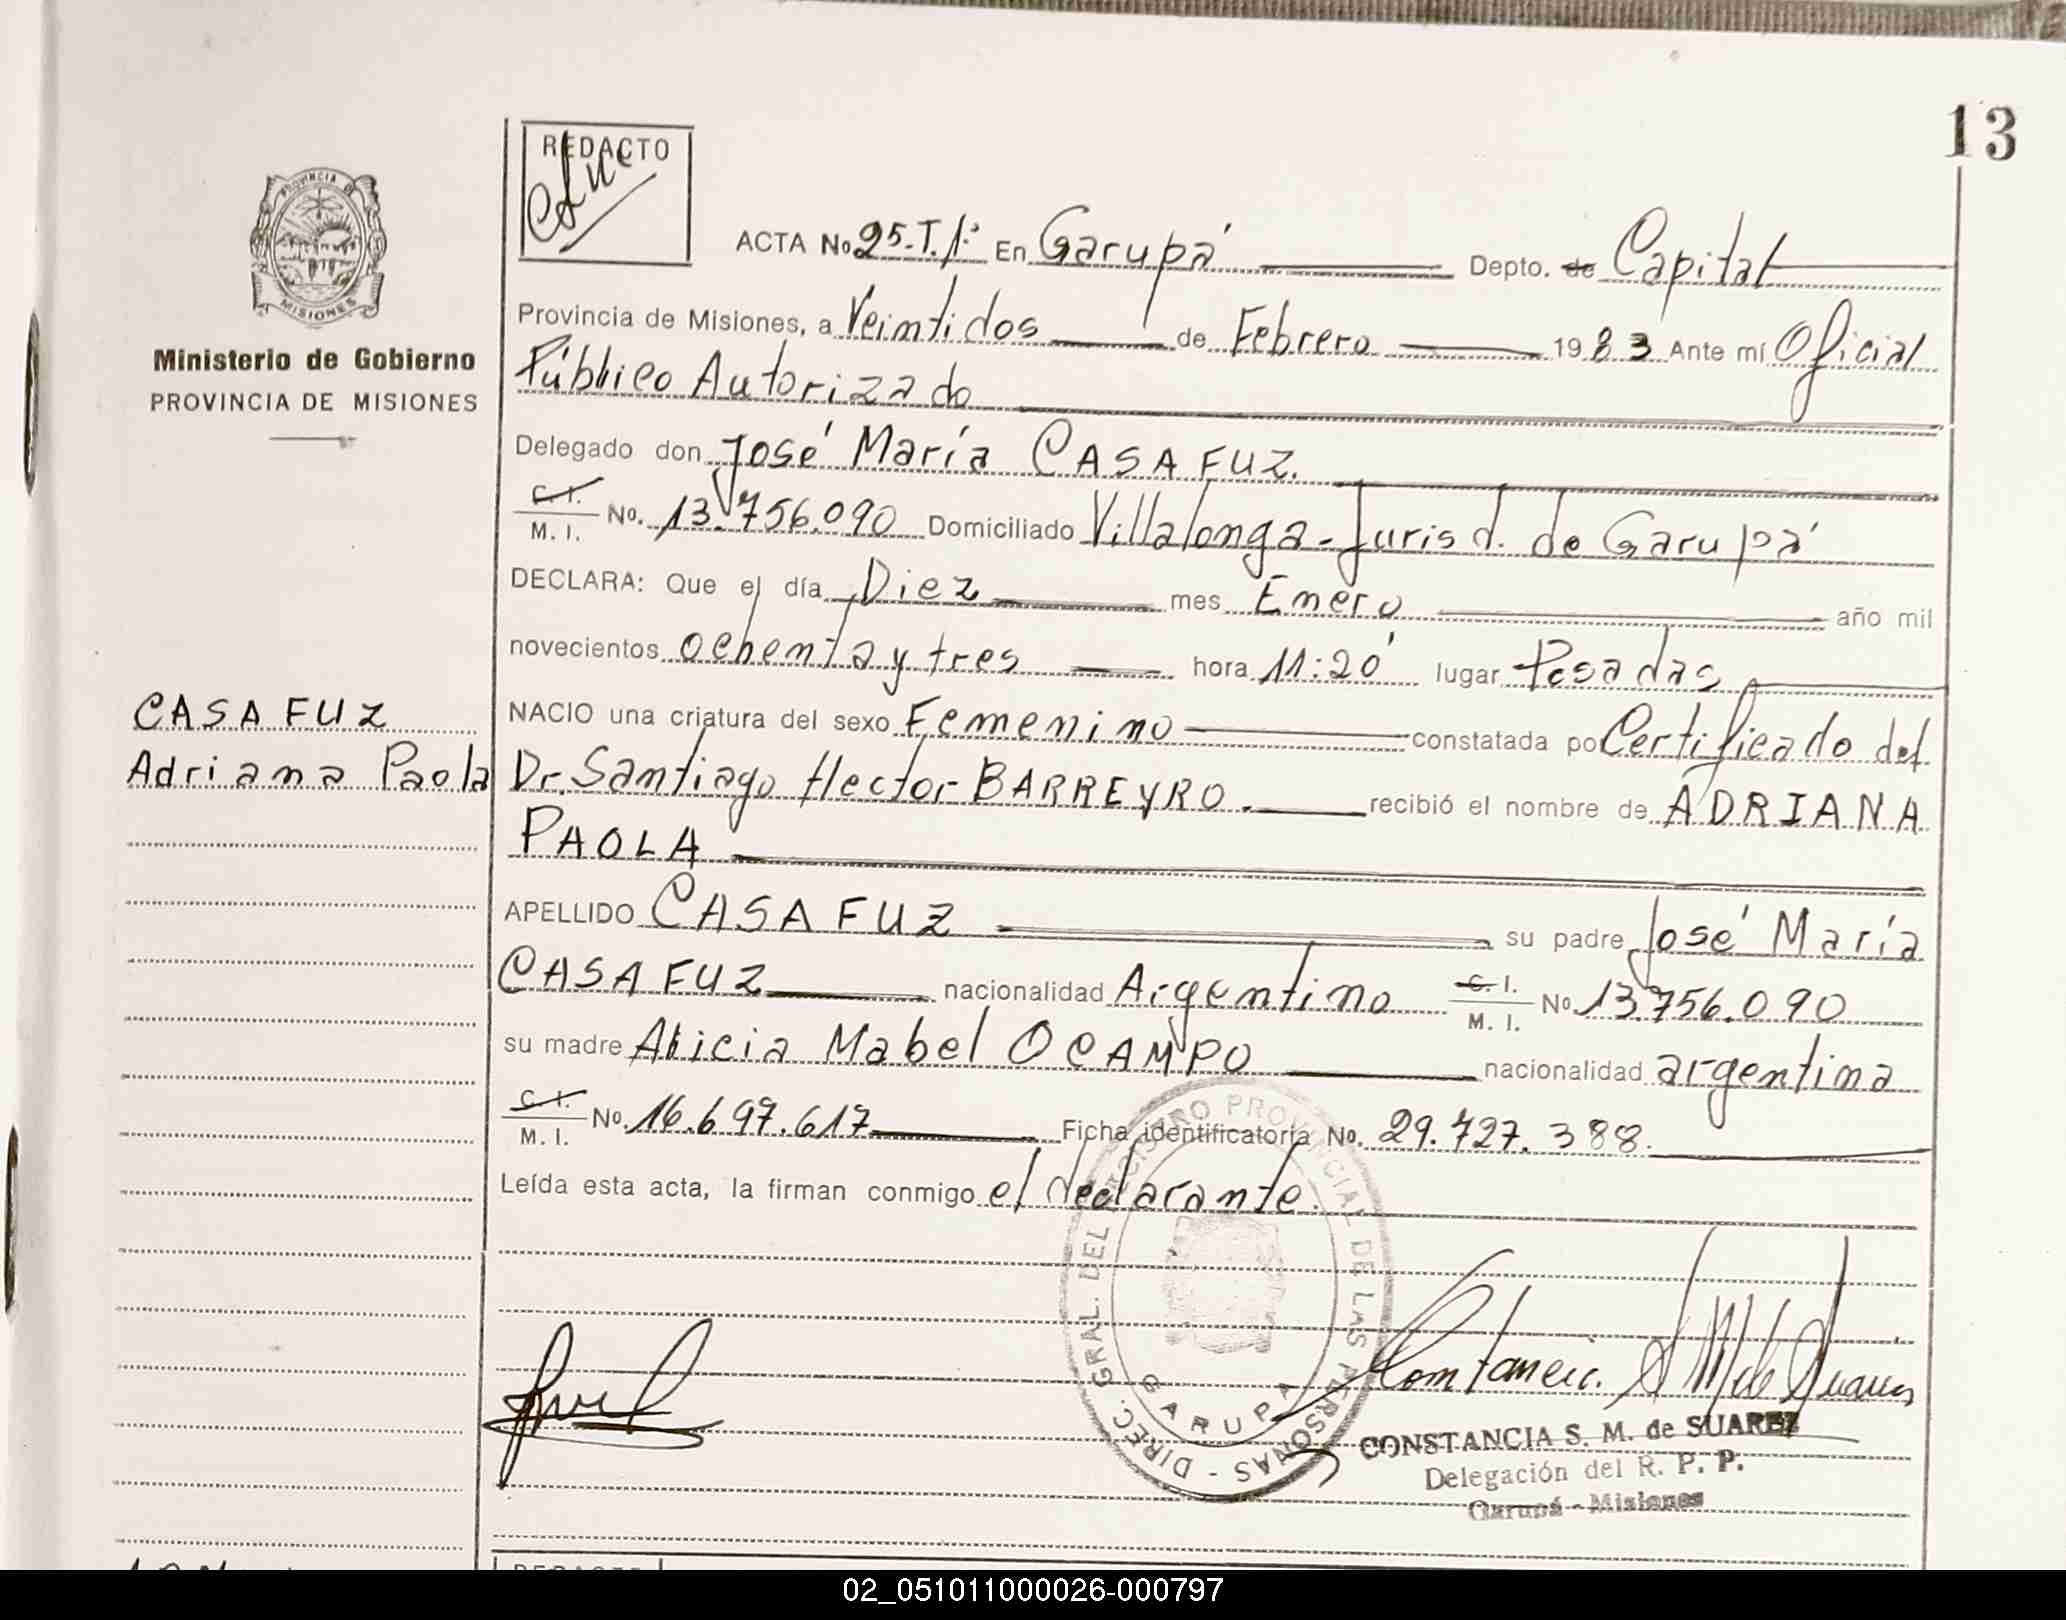 13
REDACTO
PROVINCIA DE
MISIONES
Ministerio de Gobierno
PROVINCIA DE MISIONES
CASAFUZ
Adriana Paola
ACTA No 25.T.1º En Garupá Depto. de Capital
Provincia de Misiones, a Veintidos de Febrero 1983 Ante mí Oficial
Público Autorizado
Delegado don José María CASAFUZ.
C. I. M. I. No. 13.756.090 Domiciliado Villalonga-Jurisd. de Garupá
DECLARA: Que el día Diez mes Enero año mil
novecientos ochenta y tres hora 11:20 lugar Posadas
NACIO una criatura del sexo Femenino constatada po Certificado del
Dr. Santiago Hector BARREYRO. recibió el nombre de ADRIANA
PAOLA
APELLIDO CASAFUZ su padre José María
CASAFUZ nacionalidad Argentino C. I. M. I. No. 13.756.090
su madre Alicia Mabel OCAMPO nacionalidad argentina
C. I. M. I. No. 16.697.617 Ficha identificatoria No. 29.727.388.
Leída esta acta, la firman conmigo el declarante.
DIREC. GRAL. DEL REGISTRO PROVINCIAL DE LAS PERSONAS -
GARUPA
CONSTANCIA S. M. de SUAREZ
Delegación del R. P. P.
Garupá - Misiones
02_051011000026-000797